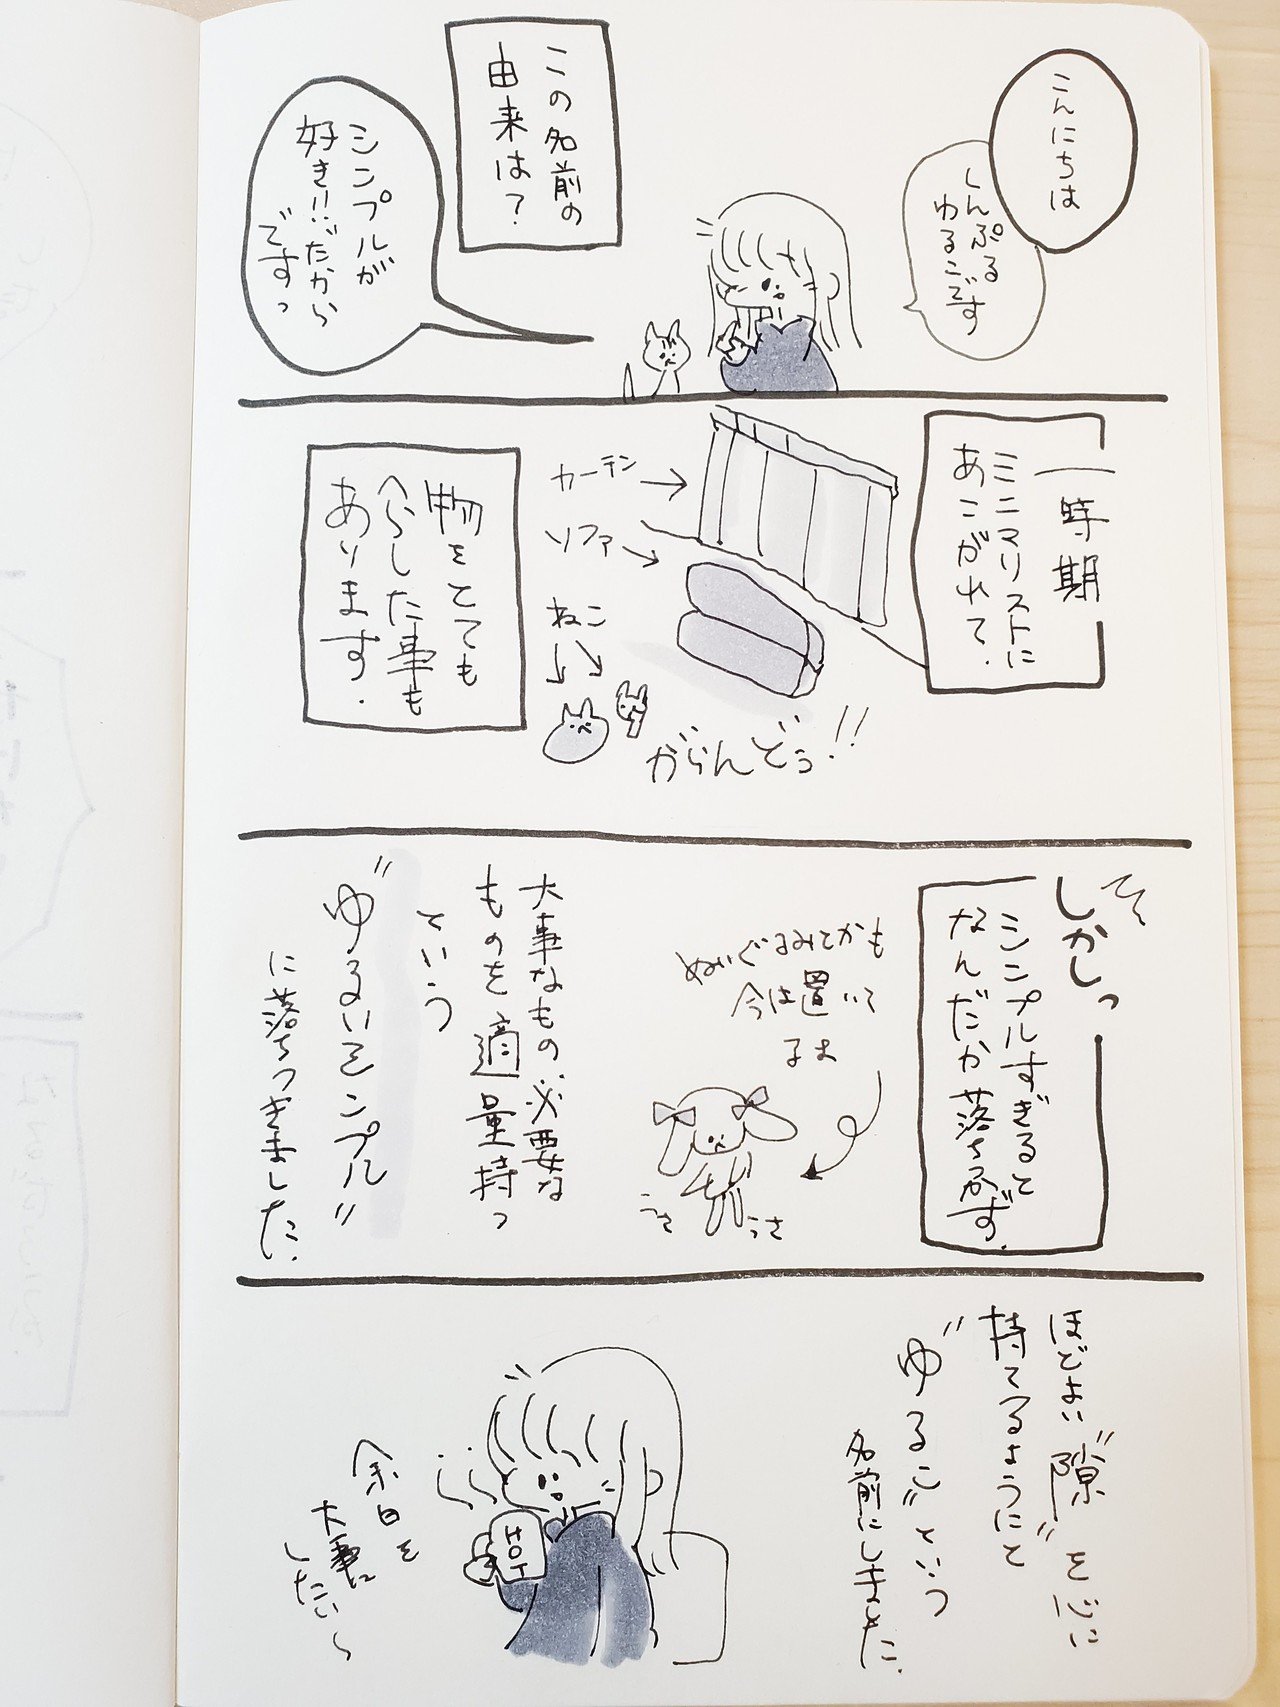 こんにちは
しんぷる
ゆるこです
この名前の
由来は?
シンプルが
好き!!だから
ですっ
一時期
ミニマリストに
あこがれて.
カーテン
ソファ
ねこ
がらんどう!!
物をとても
へらした事も
あります.
しかしっ
シンプルすぎると
なんだか落ちつかず.
ぬいぐるみとかも
今は置いて
るよ
うさ
うさ
大事なもの必要な
ものを適量持つ
ていう
"ゆるいシンプル"
に落ちつきました.
ほどよい"隙"を心に
持てるようにと
"ゆるこ"という
名前にしました.
HOT
余白を
大事に
したい〜